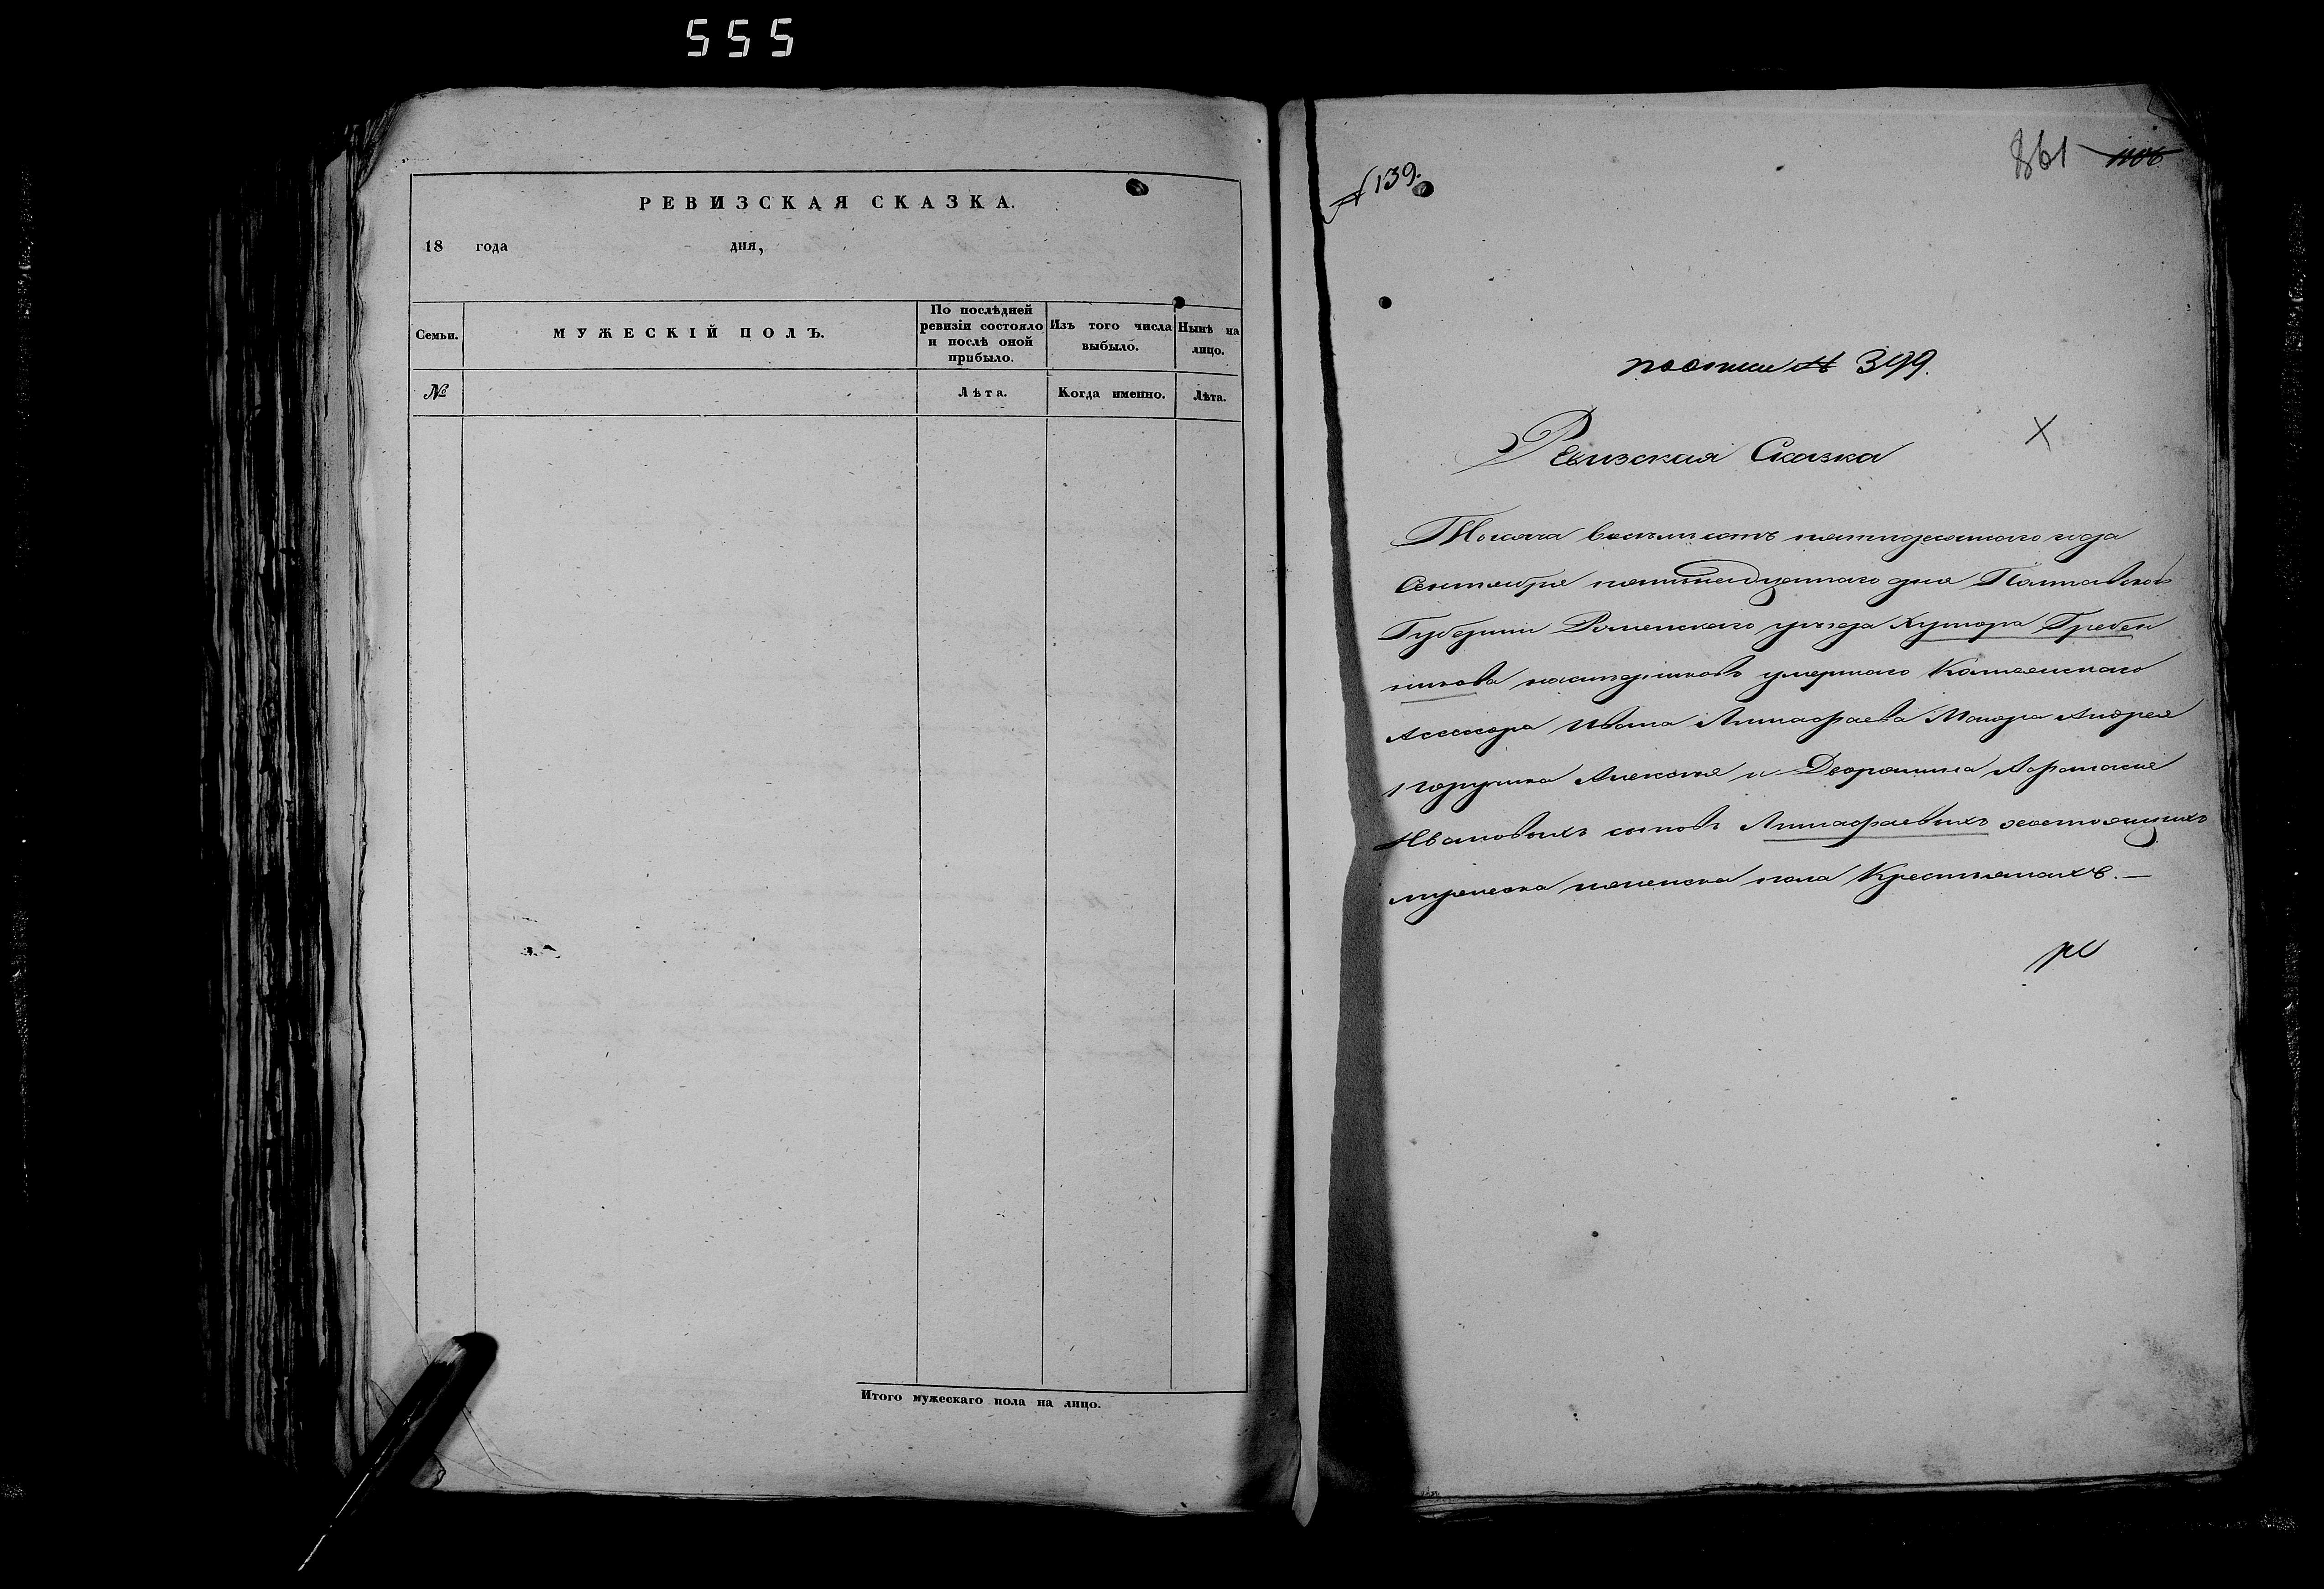 555
РЕВИЗСКАЯ СКАЗКА.
18 года дня,
Семьи.
МУЖЕСКІЙ ПОЛЪ.
По послѣдней
ревизіи состояло
и послѣ оной
прибыло.
Изъ того числа
выбыло.
Нынѣ на
лицо.
№
Лѣта.
Когда именно.
Лѣта.
Итого мужескаго пола на лицо.
№ 139.
861
по описи № 399.
Ревизская Сказка
Тысяча восемьсотъ пятидесятого года
Сентября пятнадцатаго дня Полтавской
Губернии Роменского уезда Хутора Гребен
никова наследниковъ умершаго Колежскаго
Ассесора Ивана Маиора Андрея
Порутчика Алексея и Дворянина Афанасия
Ивановыхъ сыновъ состоящихъ
мужеска и женска пола Крестьянахъ. —